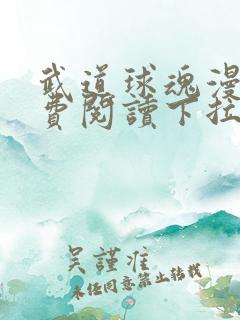 武道球魂漫
費閱讀下拉
吴謹准
未经同意禁止转载